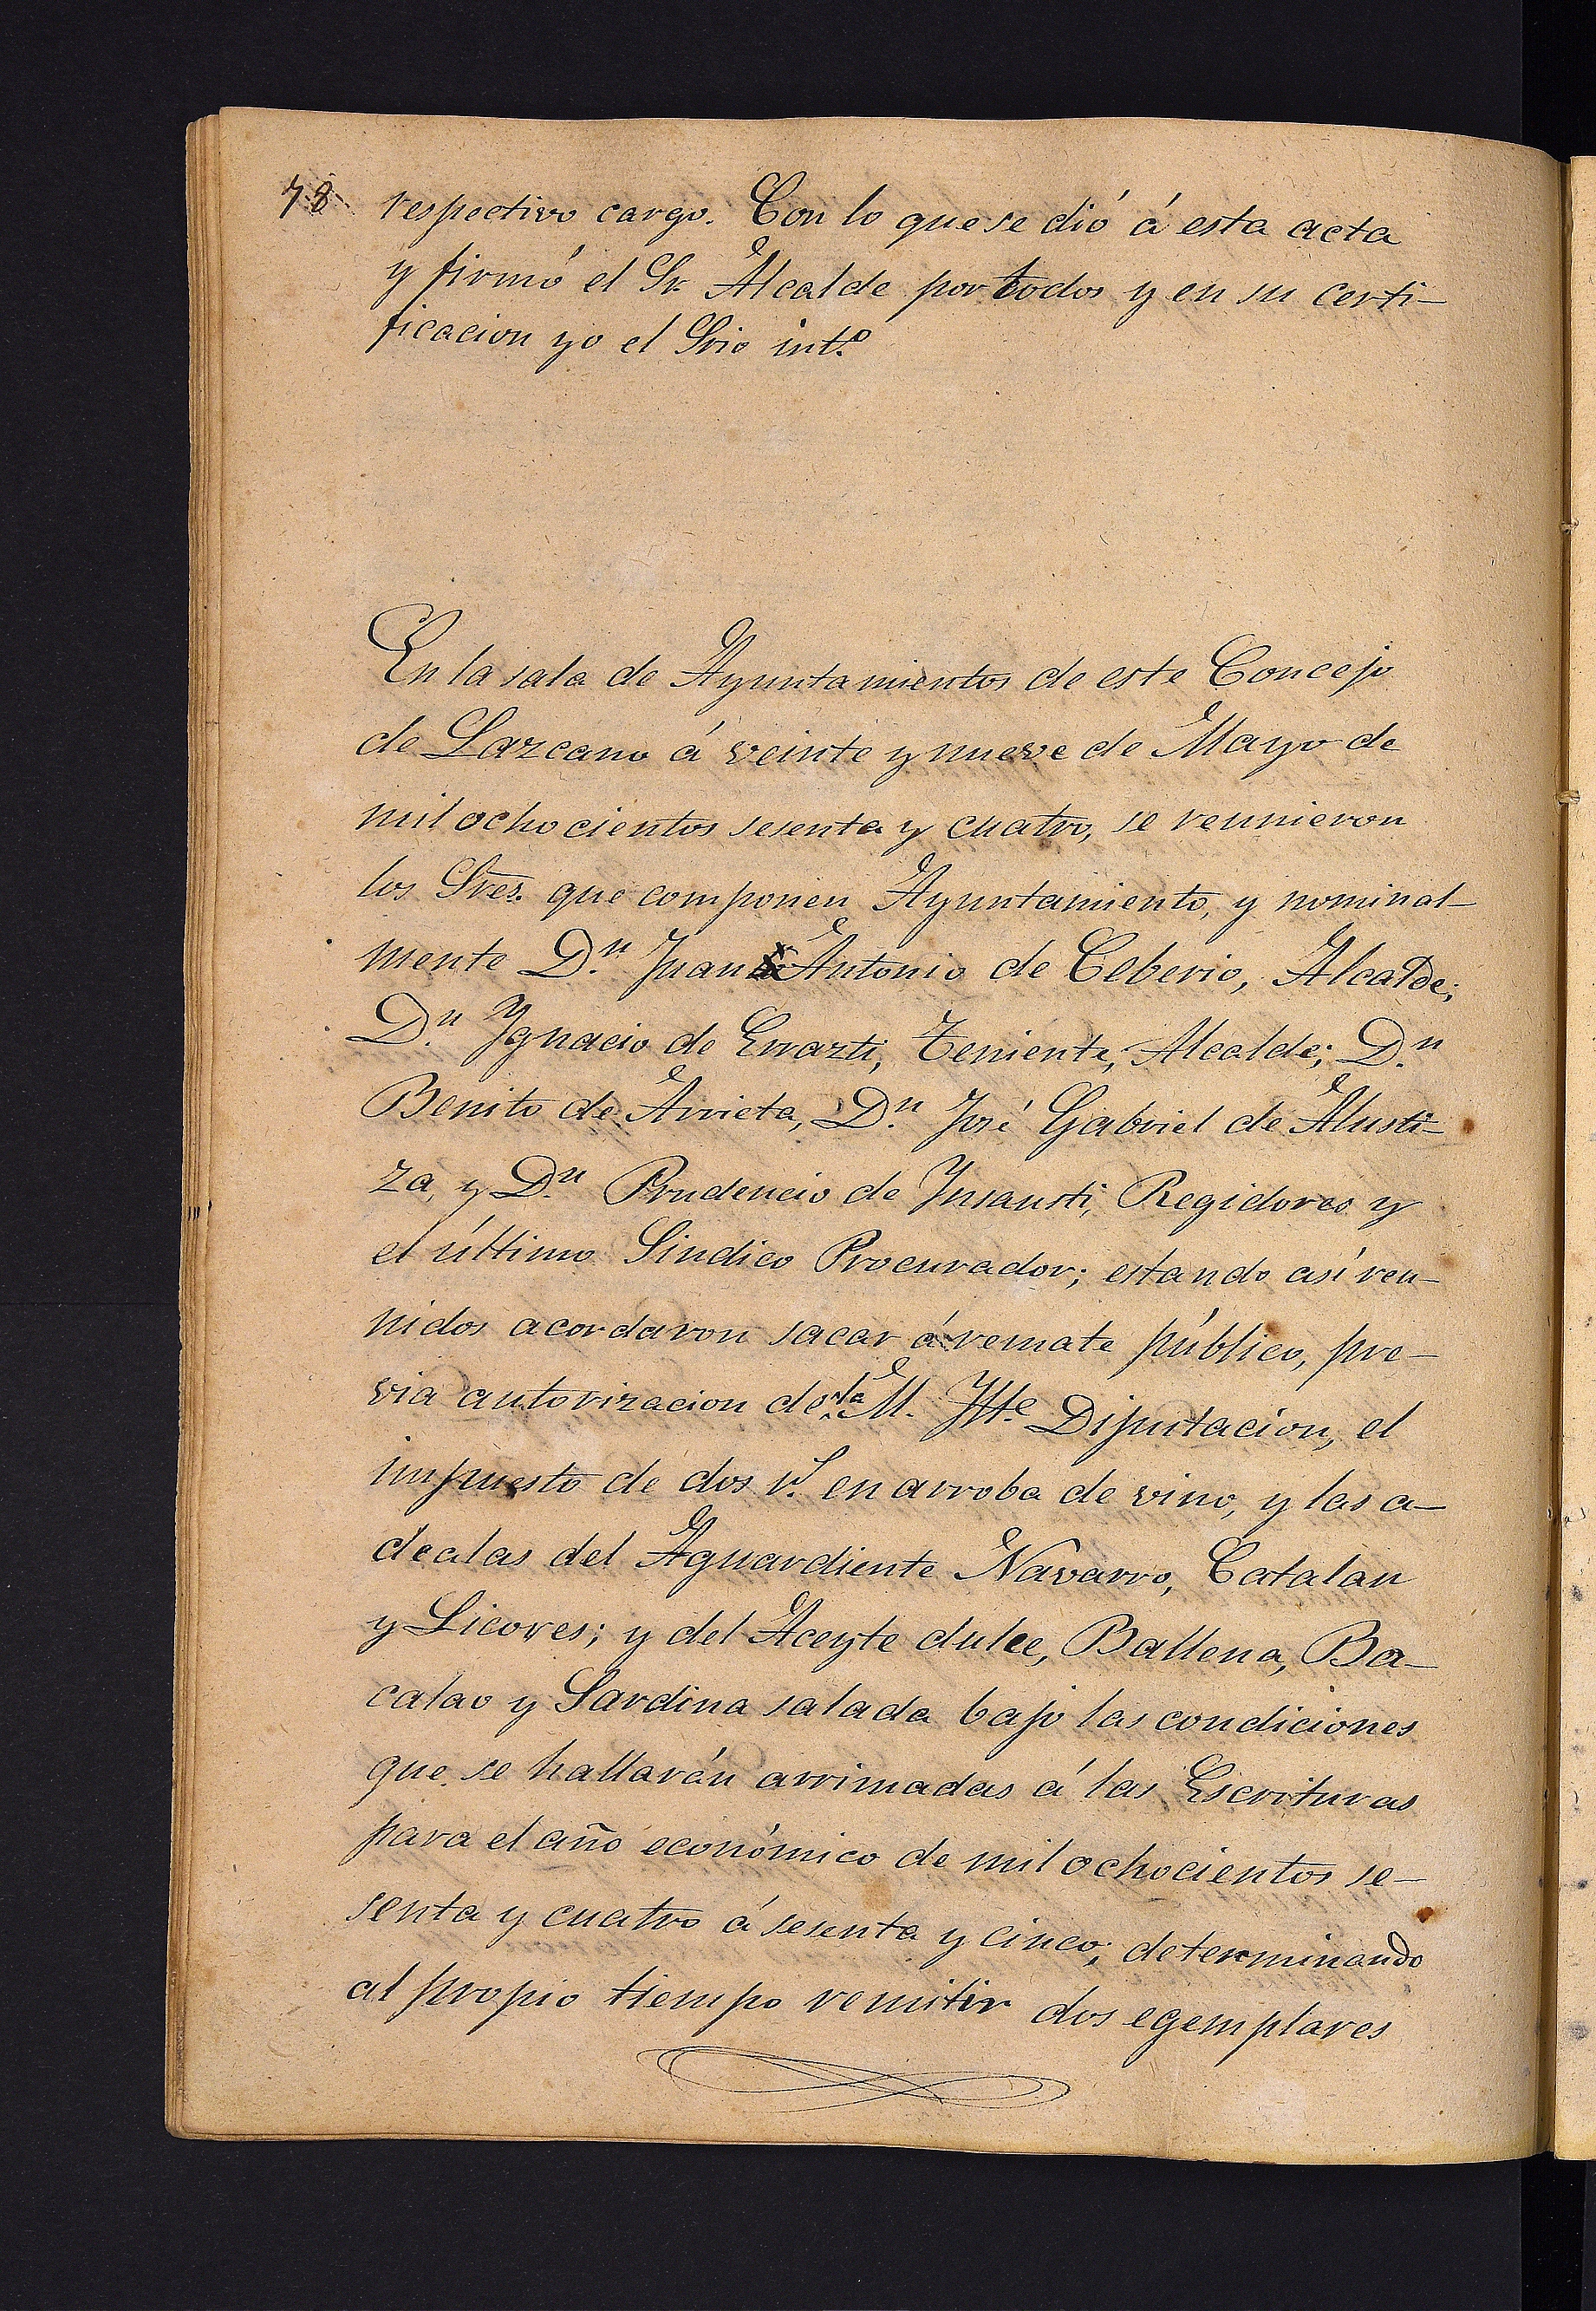 78
respectivo cargo. Con lo que se dió á esta acta
y firmó el Sr. Alcalde por todos y en su certi-
ficacion yo el Srio intº.
En la sala de Ayuntamientos de este Concejo
de Lazcano á veinte y nueve de Mayo de
mil ochocientos sesenta y cuatro, se reunieron
los Sres. que componen Ayuntamiento, y nominal-
mente D.n Juan Antonio de Ceberio, Alcalde;
D.n Ygnacio de Errazti, Teniente, Alcalde; D.n
Benito de Arrieta, D.n José Gabriel de Alusti-
za, y D.n Prudencio de Ynsausti, Regidores y
el último Sindico Procurador; estando así reu-
nidos acordaron sacar á remate público, pre-
via autorizacion de la M. Ylte Diputacion, el
impuesto de dos r.s en arroba de vino, y las a-
dealas del Aguardiente Navarro, Catalan
y Licores; y del Aceyte dulce, Ballena, Ba-
calao y Sardina salada bajo las condiciones
que se hallarán arrimadas á las Escrituras
para el año económico de mil ochocientos se-
senta y cuatro á sesenta y cinco; determinando
al propio tiempo remitir dos egemplares